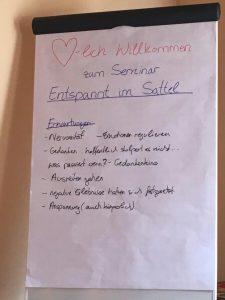 ♡-lich Willkommen
zum Seminar
Entspannt im Sattel
Erwartungen
- Nervosität - Emotionen regulieren
- Gedanken hoffentlich stolpert es nicht...
was passiert wenn? - Gedankenkino
- Ausreiten gehen
- negative Erlebnisse haben sich festgesetzt
- Anspannung (auch körperlich)